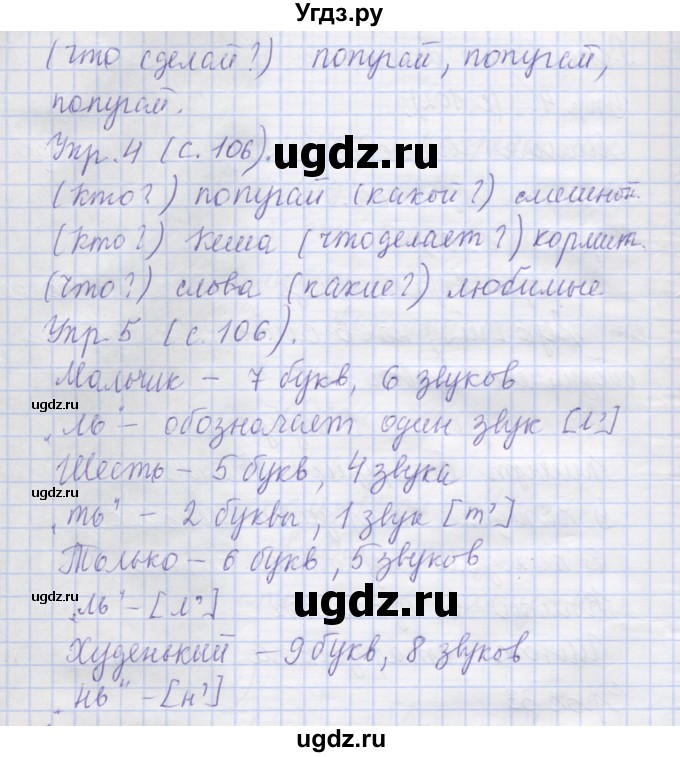 Угдз.ру
(что сделай?) попугай, попугай,
попугай.
Упр. 4 (с. 106).
ugdz.ru
(кто?) попугай (какой?) смешной.
(кто?) Кеша (что делает?) кормит.
(что?) слова (какие?) любимые
Упр. 5 (с. 106).
Мальчик – 7 букв, 6 звуков
ugdz.ru
„ль" – обозначает один звук [л']
Шесть – 5 букв, 4 звука
ugdz.ru
„ть" – 2 буквы, 1 звук [т']
Только – 6 букв, 5 звуков
ugdz.ru
„ль" – [л']
ugdz.ru
Худенький – 9 букв, 8 звуков
ugdz.ru
„нь" – [н']
ugdz.ru